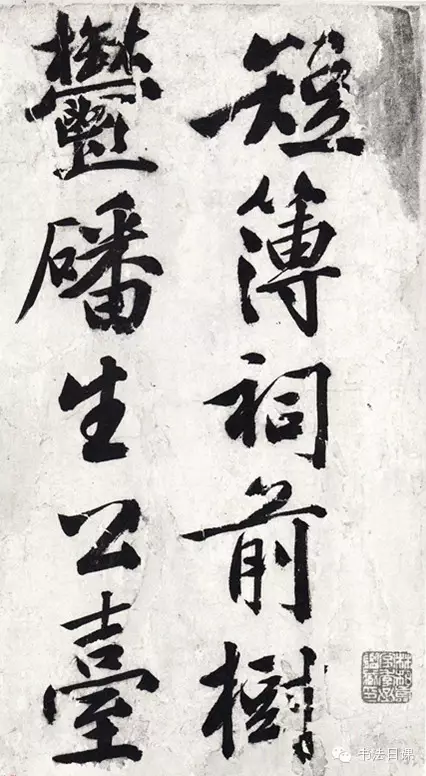 短簿祠前樹
鬱磻生公臺
书法日课